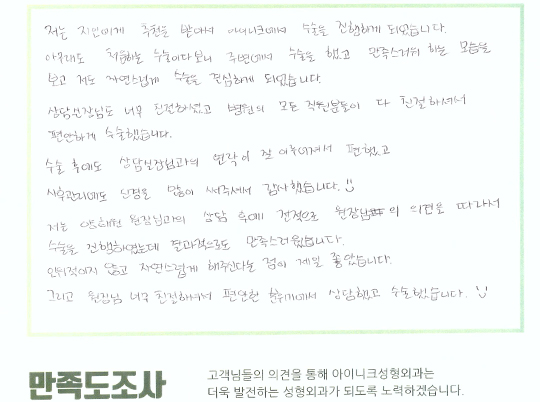 저는 지인에게 추천을 받아서 아이니크에서 수술을 진행하게 되었습니다.
아무래도 처음하는 수술이다보니 주변에서 수술을 했고 만족스러워 하는 모습을
보고 저도 자연스럽게 수술을 결심하게 되었습니다.
상담실장님도 너무 친절하셨고 병원의 모든 직원분들이 다 친절하셔서
편안하게 수술했습니다.
수술 후에도 상담실장님과의 연락이 잘 이루어져서 편했고
사후관리에도 신경을 많이 써주셔서 감사했습니다.
저는 원장님과의 상담 후에 전적으로 원장님의 의견을 따라서
수술을 진행하였는데 결과적으로도 만족스러웠습니다.
인위적이지 않고 자연스럽게 해주신다는 점이 제일 좋았습니다.
그리고 원장님 너무 친절하셔서 편안한 분위기에서 상담했고 수술했습니다.
만족도조사
고객님들의 의견을 통해 아이니크성형외과는
더욱 발전하는 성형외과가 되도록 노력하겠습니다.